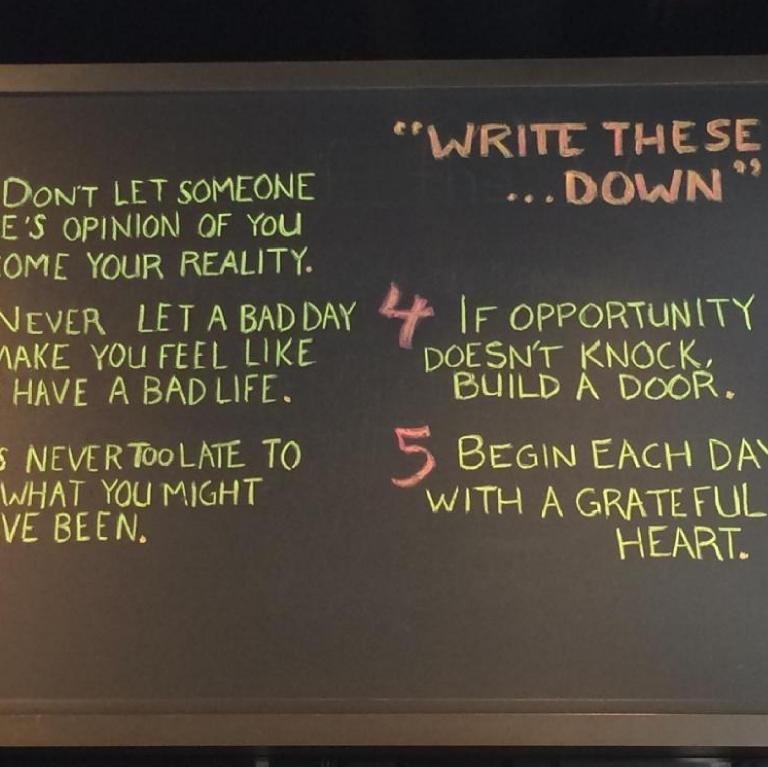 "WRITE THESE
...DOWN"
DON'T LET SOMEONE
E'S OPINION OF YOU
OME YOUR REALITY.
NEVER LET A BAD DAY
MAKE YOU FEEL LIKE
HAVE A BAD LIFE.
S NEVER TOO LATE TO
WHAT YOU MIGHT
VE BEEN.
4 IF OPPORTUNITY
DOESN'T KNOCK,
BUILD A DOOR.
5 BEGIN EACH DAY
WITH A GRATEFUL
HEART.